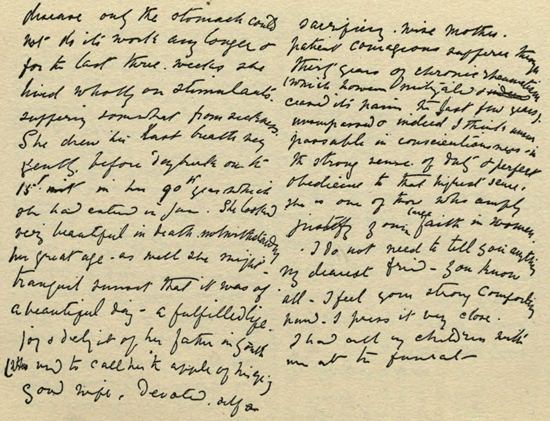 disease only the stomach could
not do its work any longer &
for the last three weeks she
lived wholly on stimulants
suffering somewhat from sickness.
She drew her last breath very
gently, before daybreak on the
15th in her 90th year which
she had entered in June. She looked
very beautiful in death notwithstanding
her great age - as well she might -
tranquil sunset that it was of
a beautiful day - a fulfilled life.
joy & delight of her father in youth
(who used to call her the apple of his eye)
good wife, devoted, self
sacrificing. wise mother.
patient courageous sufferer through
thirty years of chronic rheumatism
(which however mitigated &
ceased its pain the last few years).
unsurpassed & indeed I think
in conscientiousness - in
the strong sense of duty & perfect
obedience to that highest sense,
she is one of those who amply
justify your large faith in women.
- I do not need to tell you anything
my dearest friend - you know
all - I feel your strong comforting
hand. I press it very close.
I had all my children with
me at the funeral -